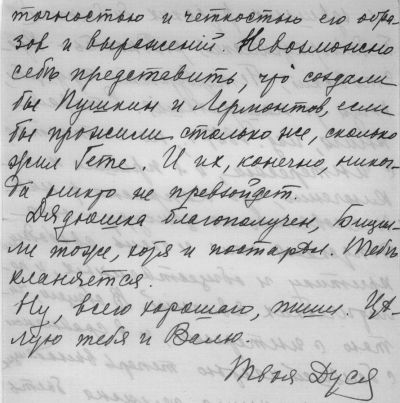 точностью и четкостью его обра-
зов и выражений. Невозможно
себѣ представить, что создали
бы Пушкин и Лермонтов, если
бы прожили столько же, сколько
жил Гете. И их, конечно, никог-
да никто не превзойдет.
Дядюшка благополучен, Бицил-
ли тоже, хотя и постарѣл. Тебѣ
кланяется.
Ну, всего хорошаго, пиши. Цѣ-
лую тебя и Валю.
Твоя Дуся